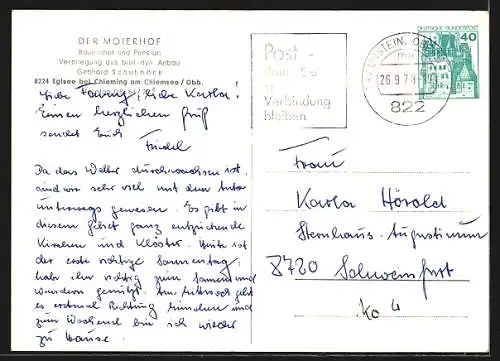 DER MOIERHOF
Bauernhof und Pension
Verpflegung aus biol.-dyn. Anbau
Gebhard Schuböck
8224 Eglsee bei Chieming am Chiemsee / Obb.
Liebe Karla!
Einen herzlichen Gruß
sendet Euch
Friedel
Da das Wetter durchwachsen ist,
sind wir sehr viel mit dem Auto
unterwegs gewesen. Es gibt in
diesem Gebiet ganz entzückende
Kirchen und Klöster. Heute ist
der erste richtige Sonnentag,
hab ihn richtig zum
Wandern genützt. Am Mittwoch geht
es erstmal Richtung München und
zum Wochenend bin ich wieder
zu Hause.
Post -
damit Sie
in
Verbindung
bleiben
26.9.78
822
DEUTSCHE BUNDESPOST
40
Frau
Karla Hörold
Sternhaus-Augustinum
8720 Schweinfurt